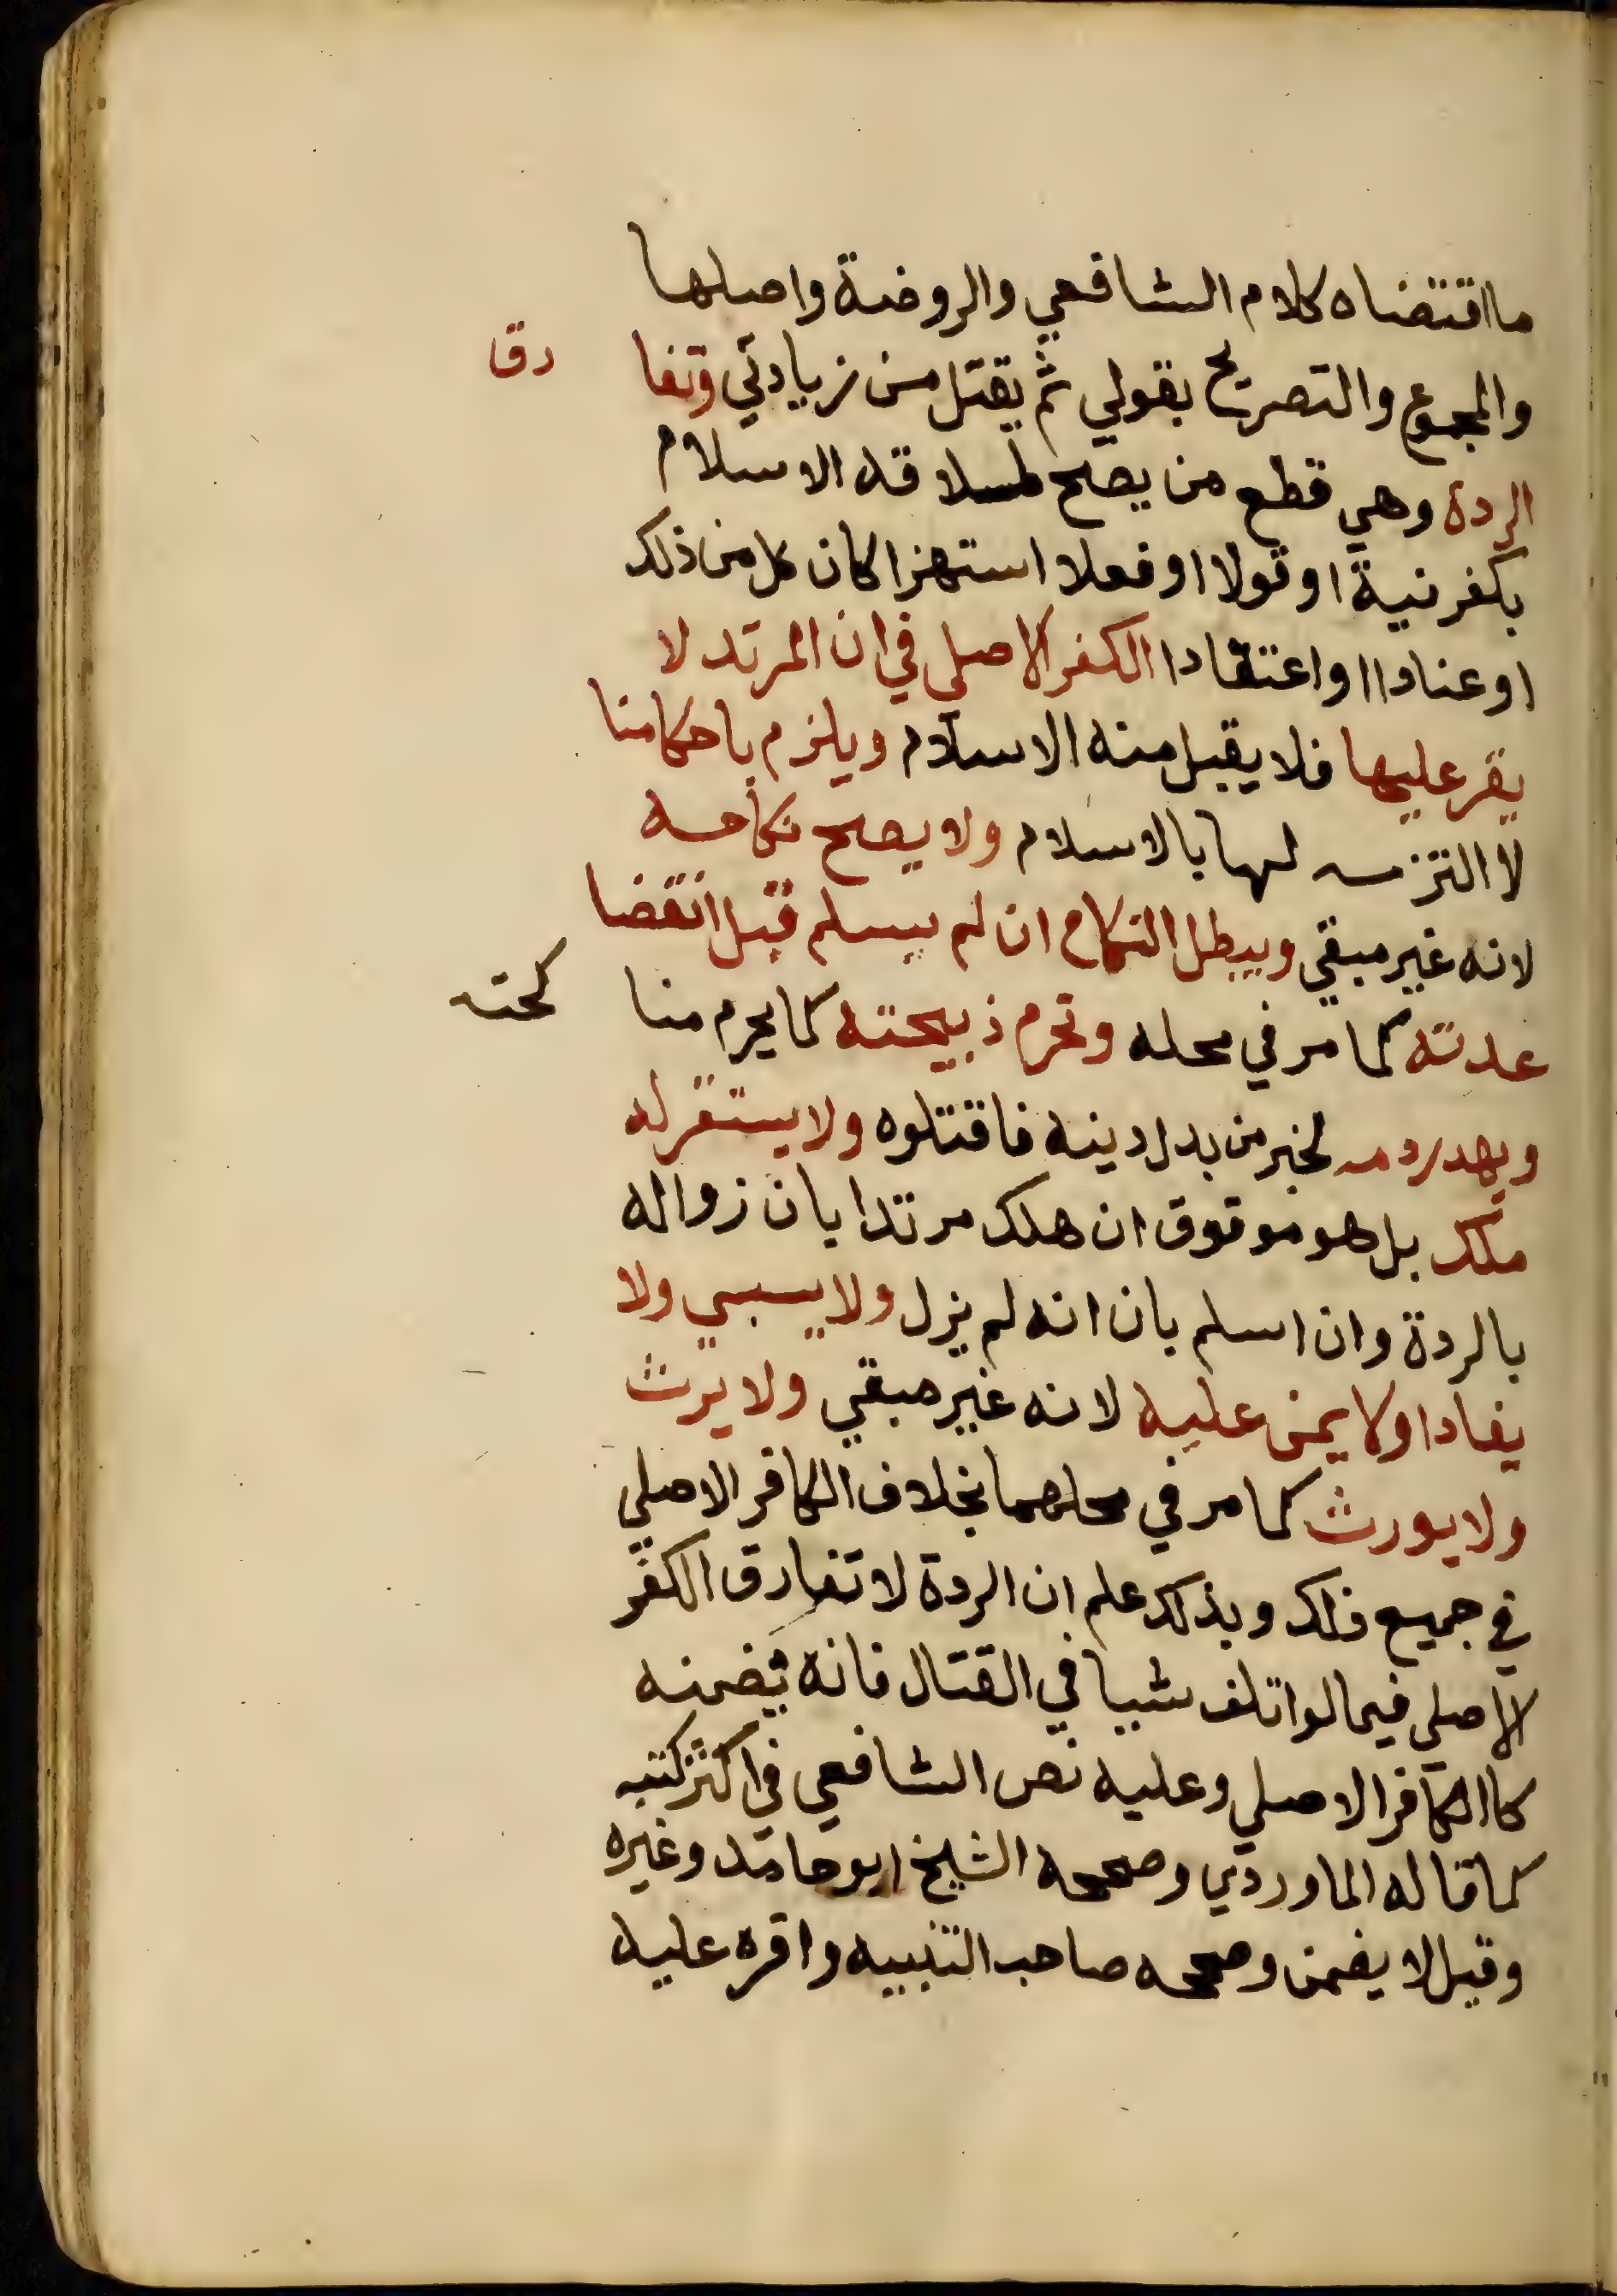 ما اقتضاه كلام الشافعي والروضة واصلها
والمجموع والتصريح بقولي ثم يقتل من زيادتي وتفا رق
الردة وهي قطع من يصح طلاقه الاسلام
بكفر نية او قولا او فعلا استهزا كان كل من ذلك
او عنادا او اعتقادا الكفر الاصلي في ان المرتد لا
يقر عليها فلا يقبل منه الا الاسلام ويلزم باحكامنا
لا التزمه لها بالاسلام ولا يصح نكاحه
لانه غير مبقي ويبطل النكاح ان لم يسلم قبل انقضا
عدته كما مر في محله وتحرم ذبيحته كما يحرم منا كحته
ويهدر دمه لخبر من بدل دينه فاقتلوه ولا يستقر له
ملك بل هو موقوق ان هلك مرتدا بان زواله
بالردة وان اسلم بان انه لم يزل ولا يسبي ولا
يفادا ولا يمن عليه لانه غير مبقي ولا يرث
ولا يورث كما مر في محلهما بخلاف الكافر الاصلي
في جميع ذلك وبذلك علم ان الردة لا تفارق الكفر
الاصلي فيما لو اتلف شيا في القتال فانه يضمنه
كاالكافر الاصلي وعليه نص الشافعي في اكثر كتبه
كما قاله الماوردي وصححه الشيخ ابو حامد وغيره
وقيل لا يضمن وصححه صاحب التنبيه واقره عليه